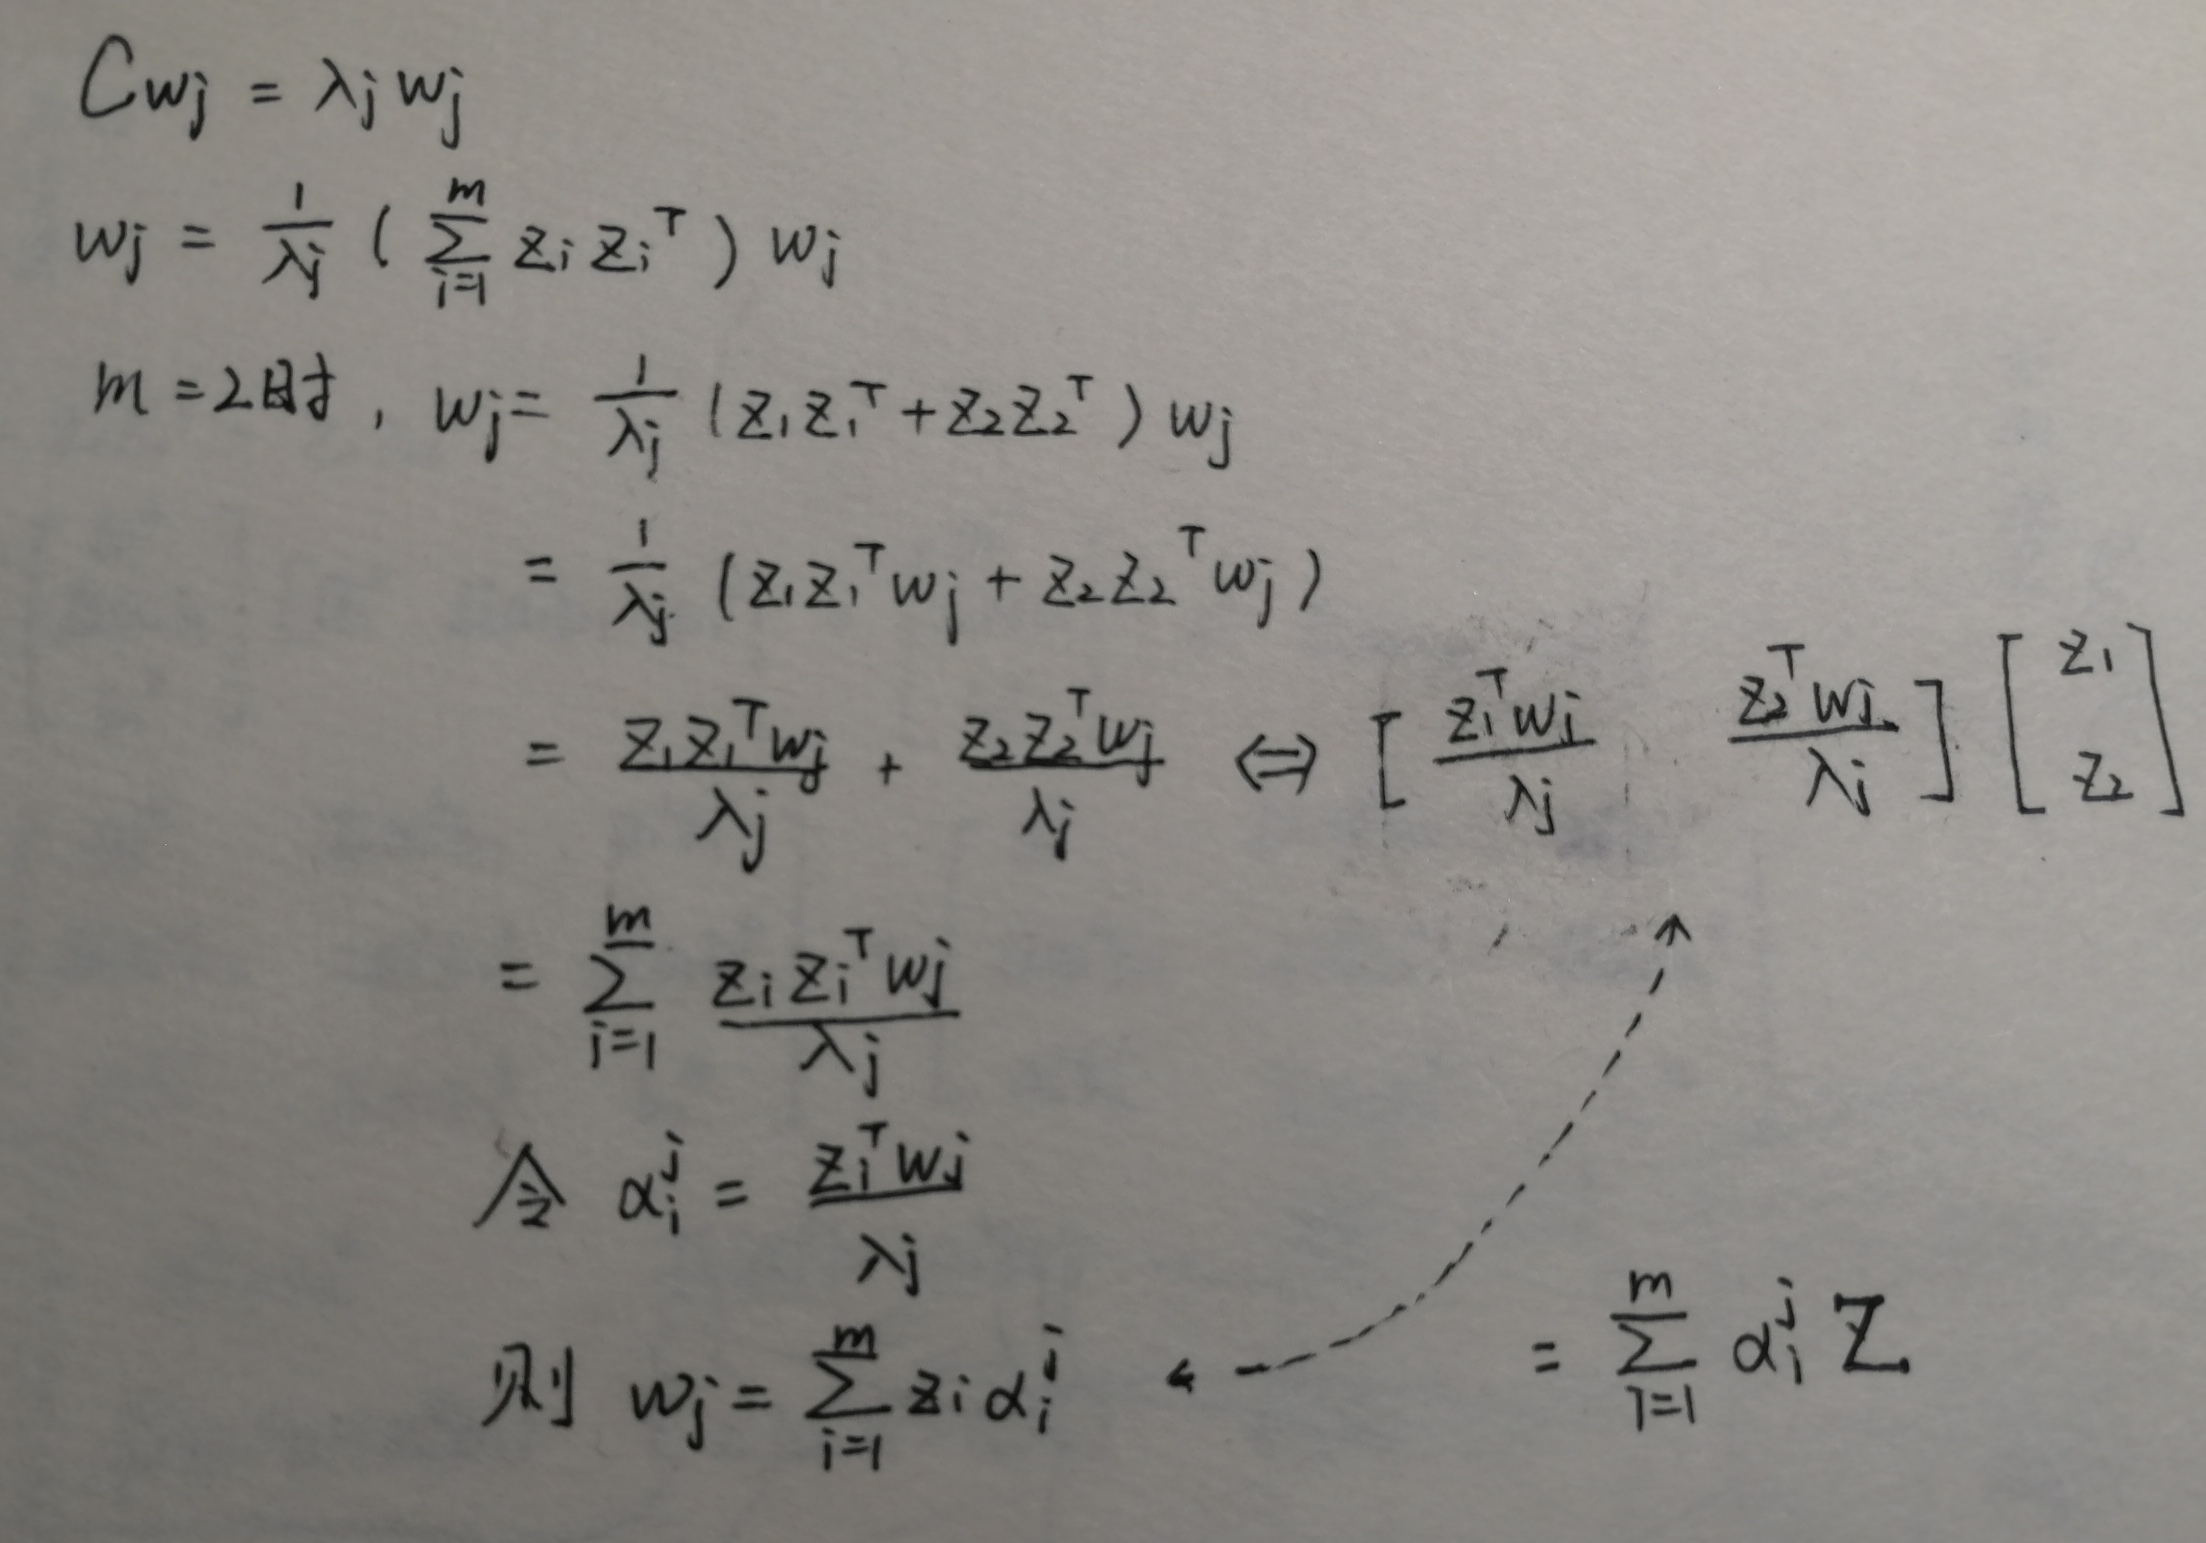 Cwj = λj wj
wj = 1/λj ( ∑_{i=1}^{m} zi zi^T ) wj
m = 2时, wj = 1/λj (z1 z1^T + z2 z2^T) wj
= 1/λj (z1 z1^T wj + z2 z2^T wj)
= z1 z1^T wj / λj + z2 z2^T wj / λj ⇔ [ z1^T wj / λj  z2^T wj / λj ] [ z1 z2 ]
= ∑_{i=1}^{m} zi zi^T wj / λj
令 αi^j = zi^T wj / λj
则 wj = ∑_{i=1}^{m} zi αi^j
= ∑_{i=1}^{m} αi^j Z